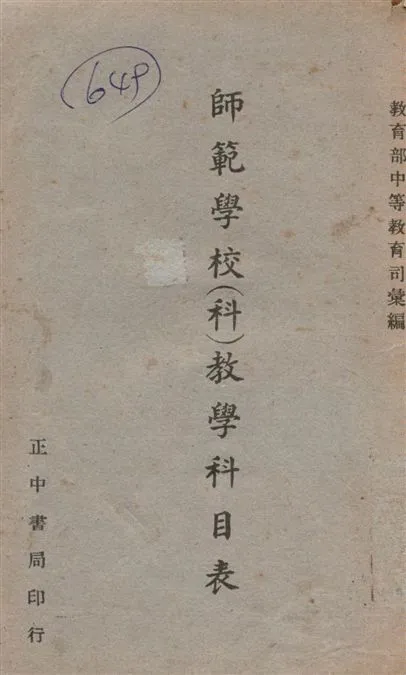 教育部中等教育司彙編
師範學校(科)教學科目表
正中書局印行
649